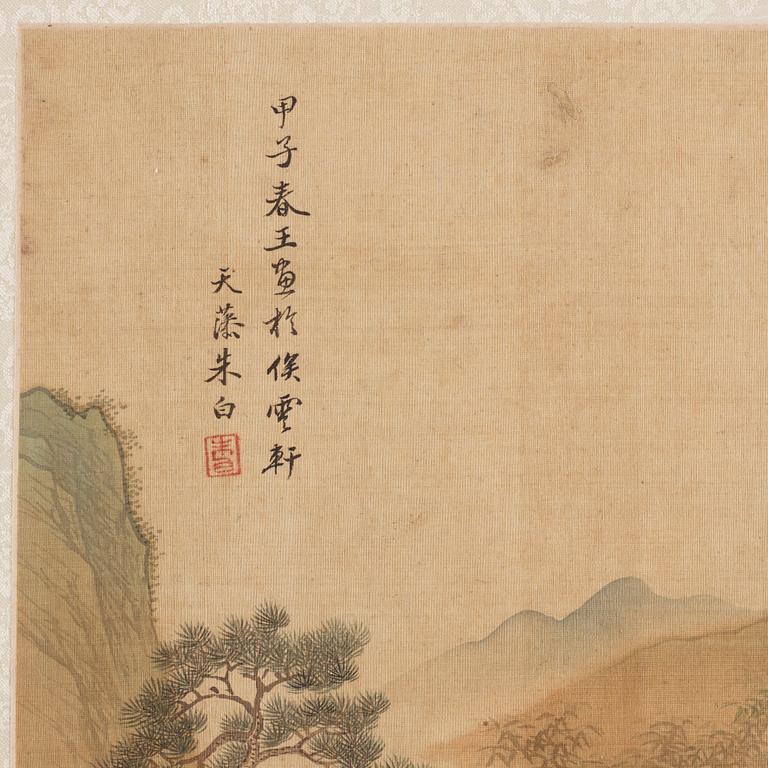 甲子春王畫於俟雲軒
天藻朱白